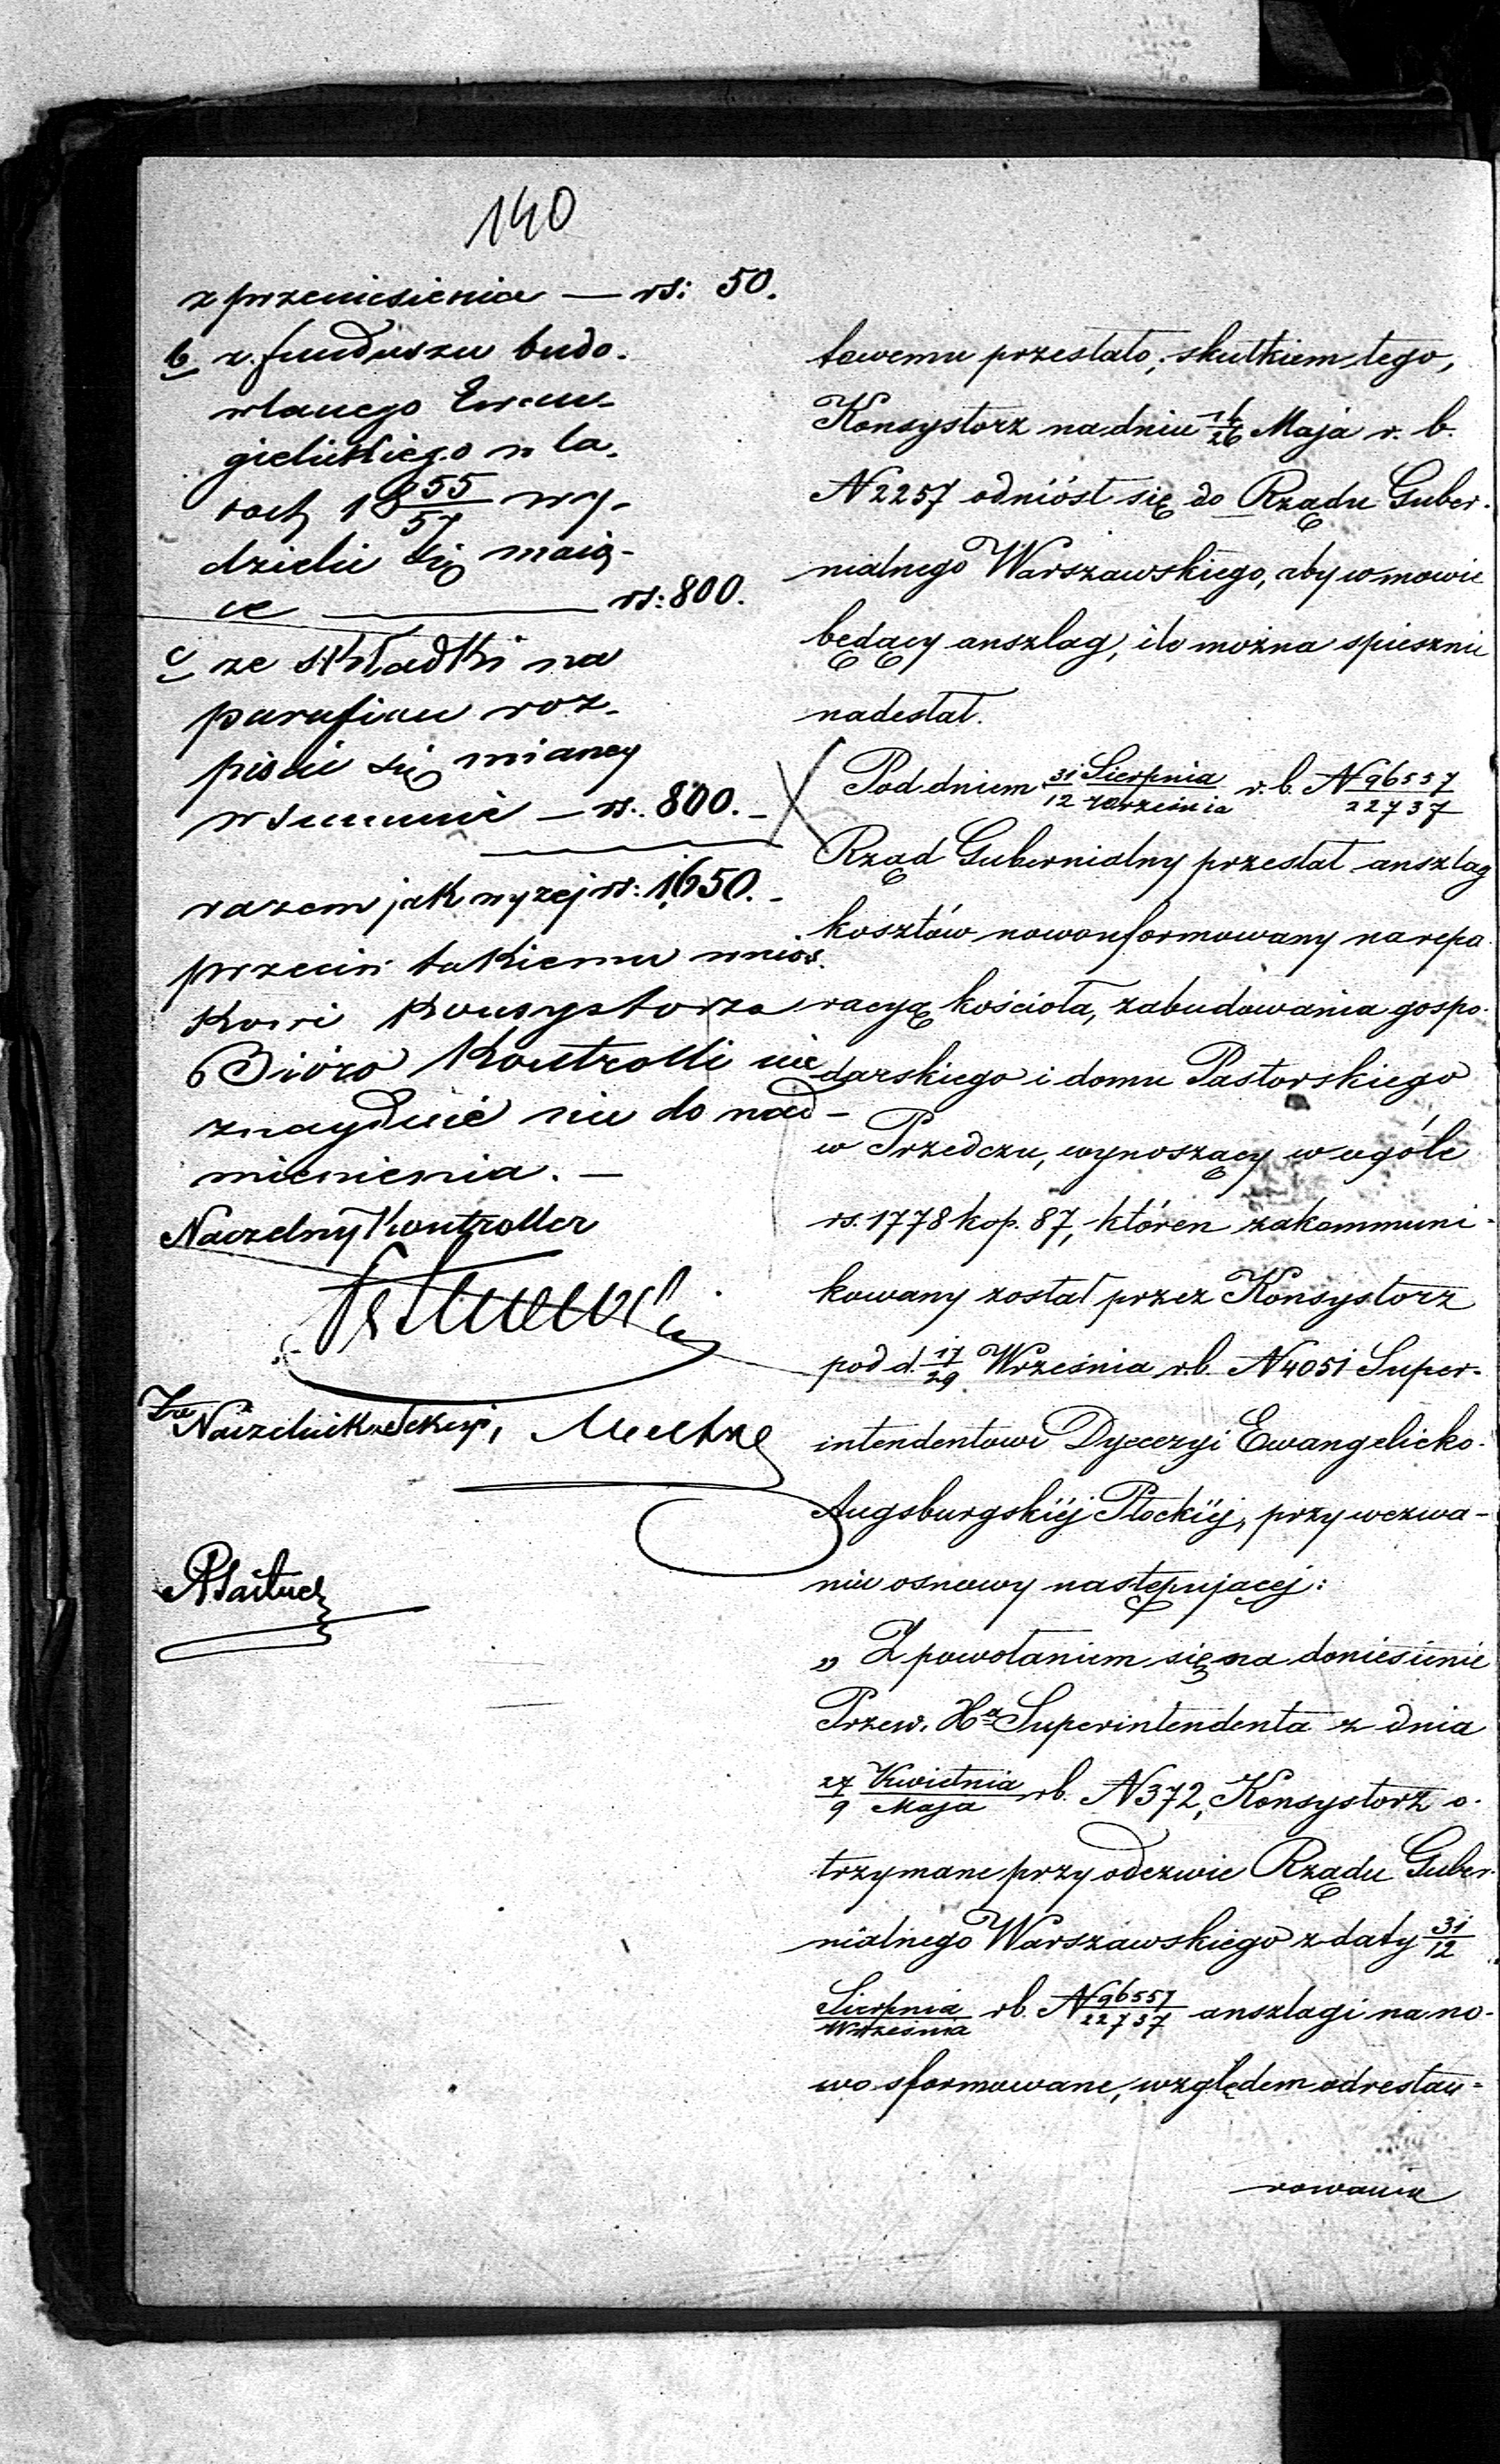 140
z przeniesienia — rs: 50.
b z funduszu budo-
wlanego Ewan-
gielickiego w la-
tach 18 55/57 wy-
dzielić się mają-
ce — rs: 800.
c ze składki na
parafian roz-
pisać się mianey
w summie — rs. 800. —
razem jak wyzej rs: 1650. —
przeciw takiemu wnios-
kowi Konsystorza
Bióro Kontrolli nie
znayduie nic do nad-
mienienia. —
Naczelny Kontroller
Za Naczelnika Sekcyi,
towemu przestało; skutkiem tego,
Konsystorz na dniu 14/26 Maja r. b.
N 2257 odniósł się do Rządu Guber-
nialnego Warszawskiego, aby w mowie
będący anszlag, ile można spiesznie
nadesłał.
Pod dniem 31 Sierpnia/12 Września r. b. N 96557/22737
Rząd Gubernialny przesłał anszlag
kosztów nowouformowany na repa-
racyę kościoła, zabudowania gospo-
darskiego i domu Pastorskiego
w Przedczu, wynoszący w ogóle
rs. 1778 kop. 87, któren zakommuni-
kowany został przez Konsystorz
pod d. 17/29 Września r.b. N 4051 Super-
intendentowi Dyecezyi Ewangelicko-
Augsburgskiéj Płockiéj, przy wezwa-
niu osnowy następujacej:
„Z powołaniem się na doniesienie
Przew. Xa Superintendenta z dnia
27/9 Kwietnia/Maja r.b. N 372, Konsystorz o-
trzymane przy odezwie Rządu Guber-
nialnego Warszawskiego z daty 31/12
Sierpnia/Września r.b. N 96557/22737 anszlagi na no-
wo sformowane, względem odrestau-
rowania